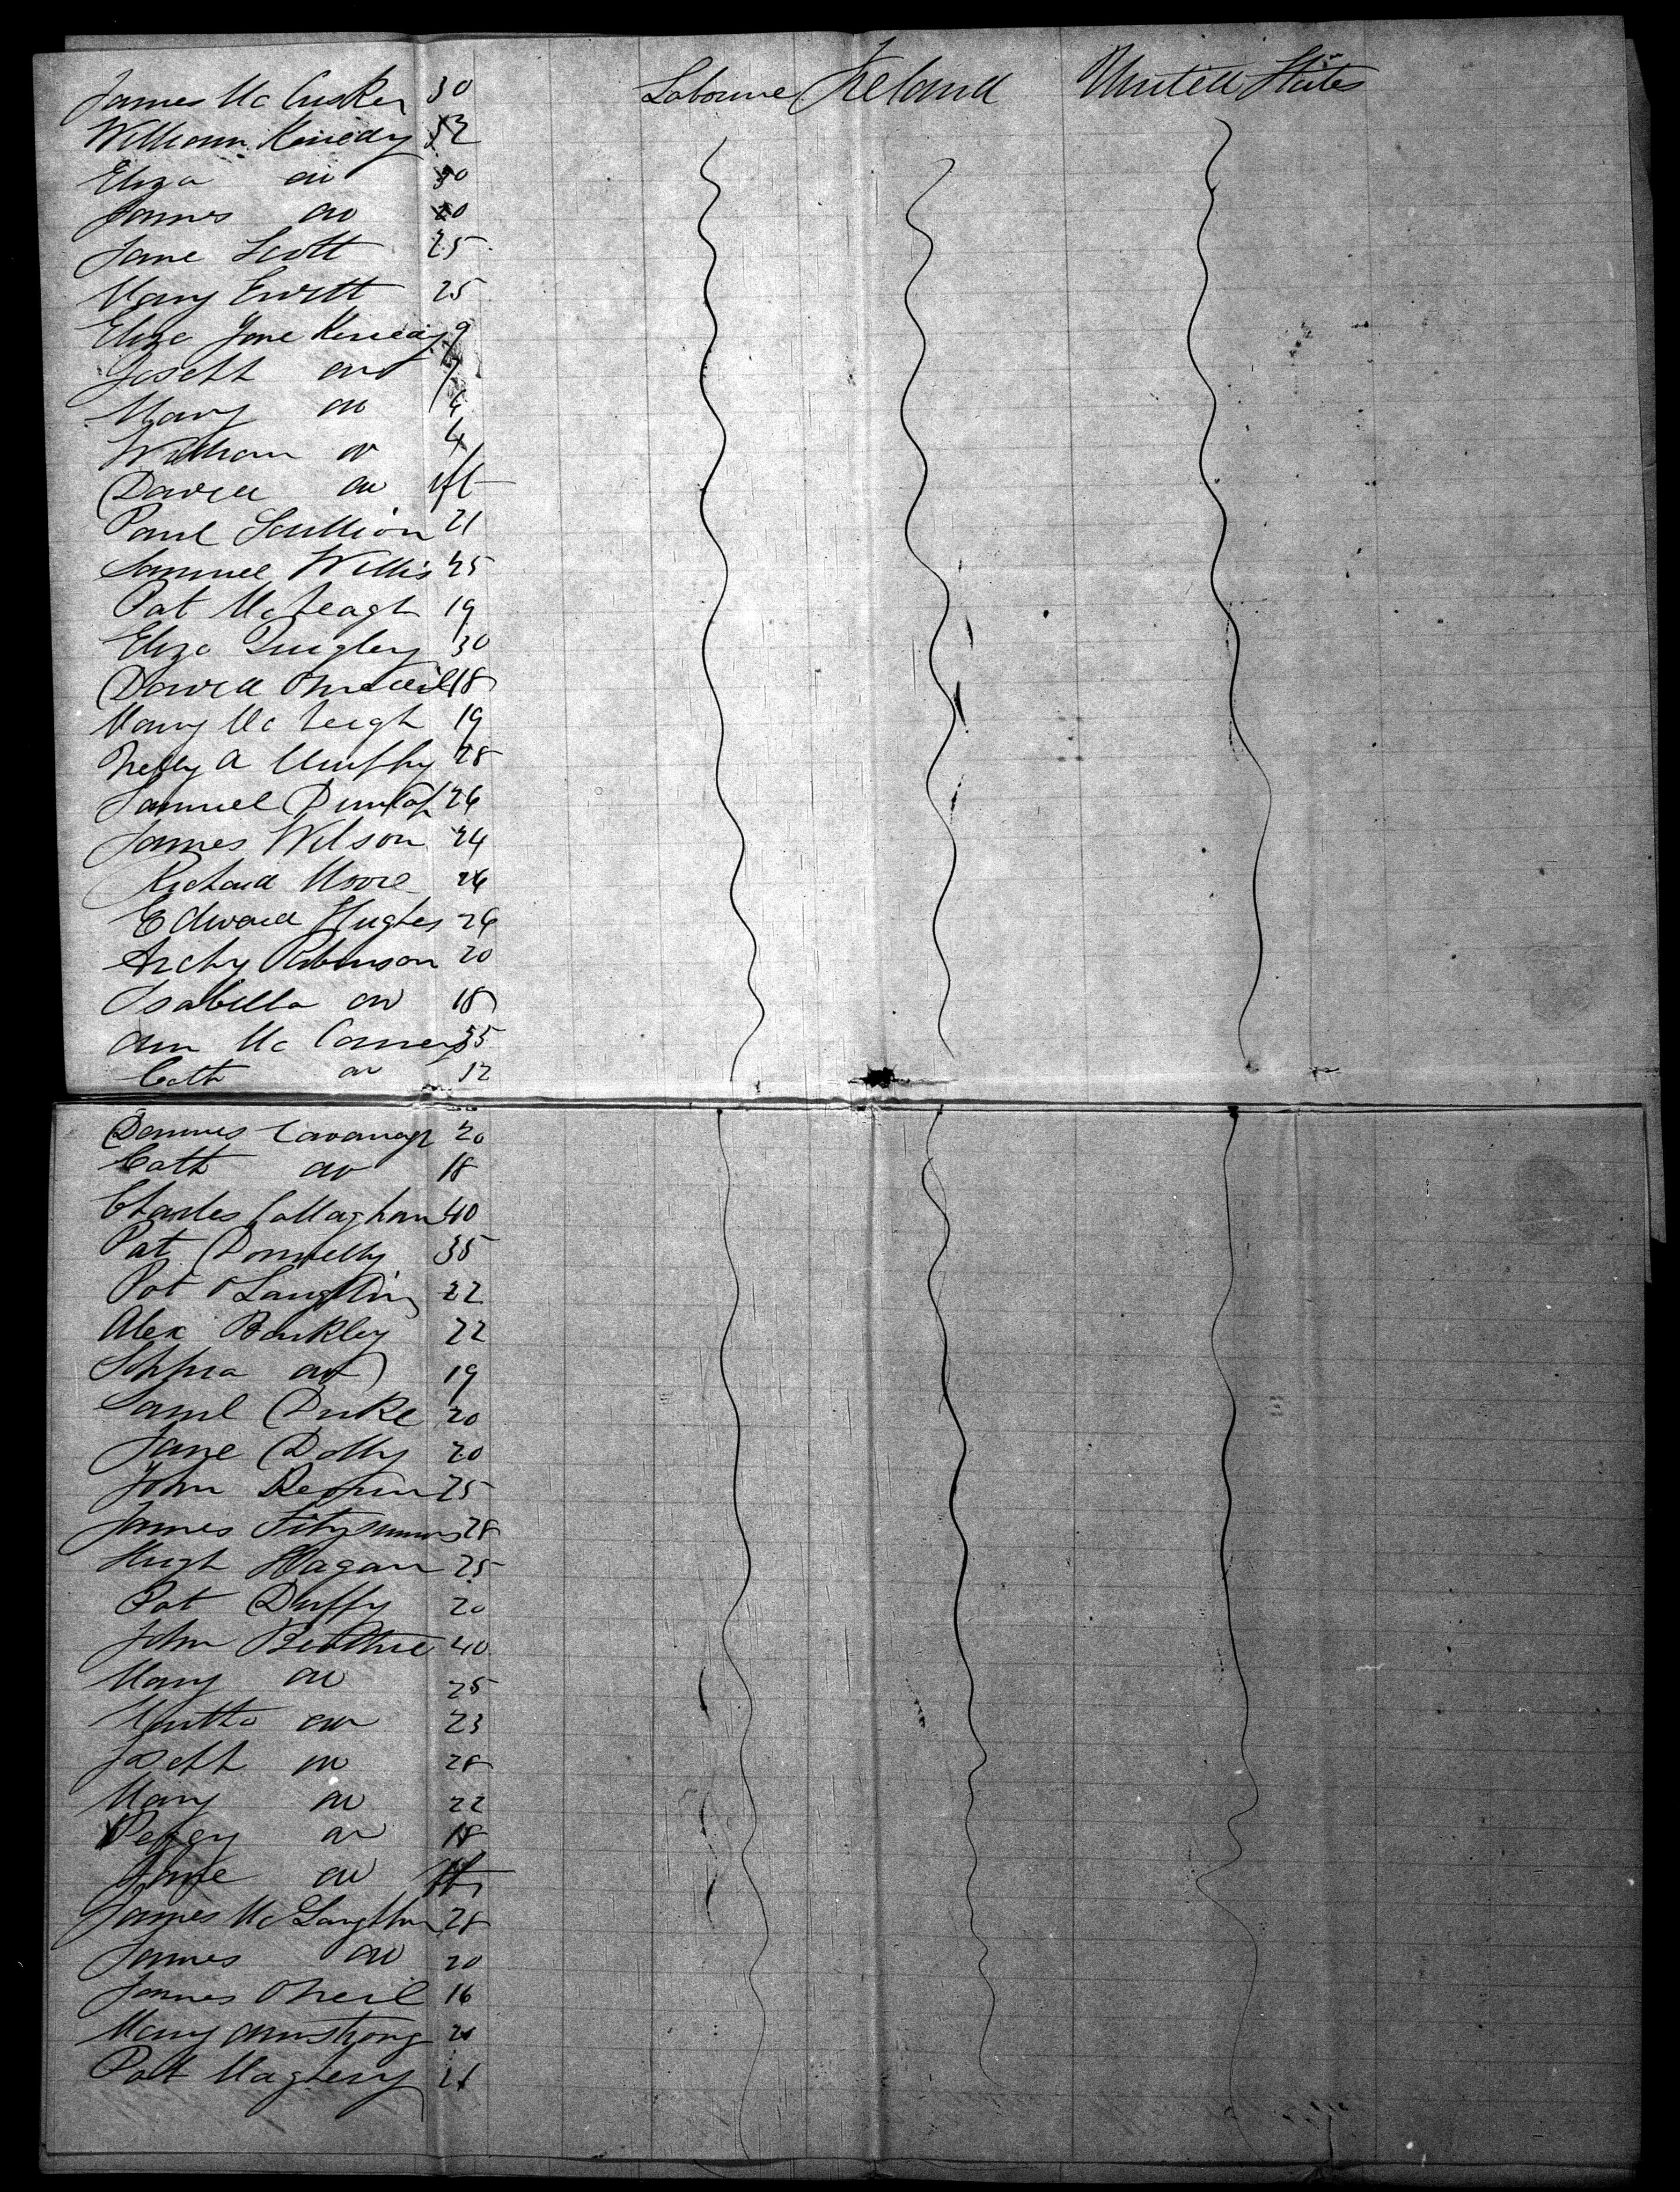 James Mc Cusker 30 Labourer Ireland United States
William Kenedy 32
Eliza do 30
James do 20
Jane Scott 25
Mary Ewett 25
Eliza Jane Kenedy 9
Joseph do 7
Mary do
William do 4
David do Inft
Paul Scullion 21
Samuel Willis 25
Pat McPeagh 19
Eliza Quigley 30
David 18
Mary Mc Peigh 19
A Murphy 28
Samuel Dunlop 26
James Wilson 24
Richard Moore 26
Edward Hughes 26
Archy Robinson 20
Isabella do 18
Ann Mc 35
Cath do 12
Dennis Cavanagh 20
Cath do 18
Charles Callaghan 40
Pat Donnelly 35
Pat OLaughlin 22
Alex Barkley 22
do 19
Saml Duke 20
Jane Dolly 20
John 25
James Fitzsimmons 28
Hugh Hagan 25
Pat Duffy 20
John Beattie 40
Mary do 25
do 23
Joseph do 28
Mary do 22
Peggy do 18
Jane do
James McLaughlin 28
James do 20
James ONeil 16
Mary Armstrong
Pat 21